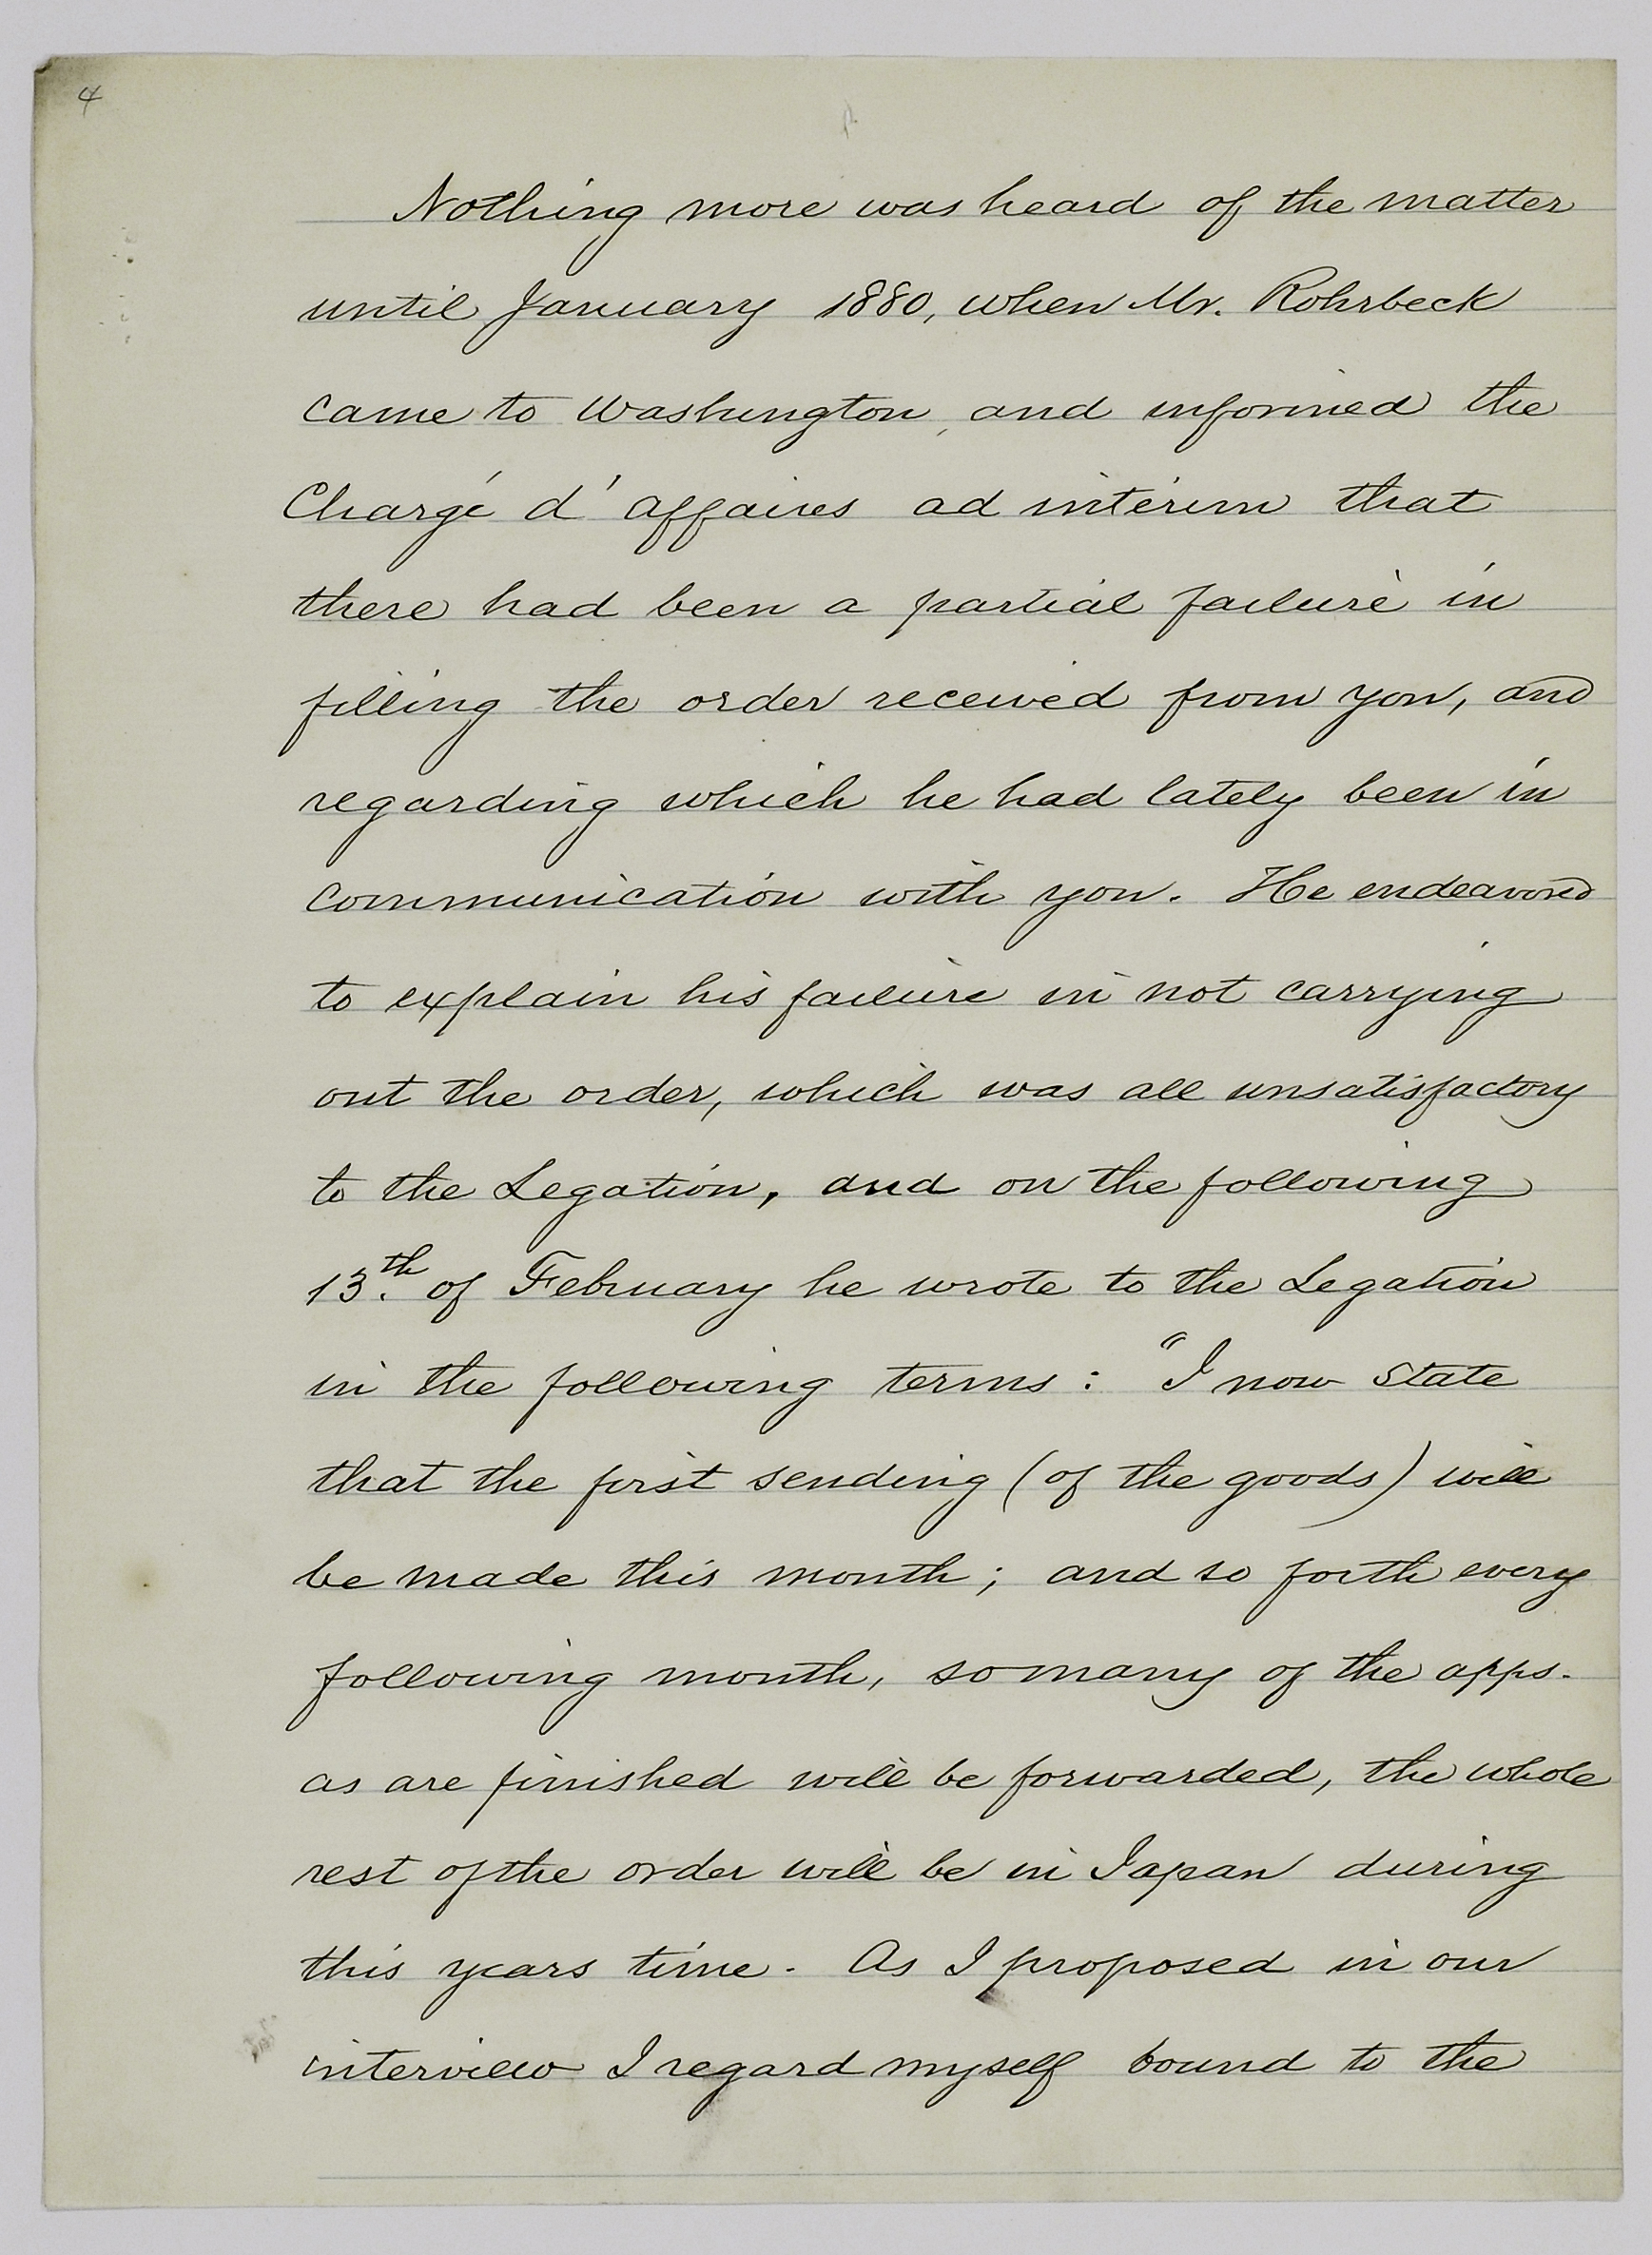 4
Nothing more was heard of the matter
until January 1880, when Mr. Rohrbeck
came to Washington, and informed the
Chargé d'affaires ad interim that
there had been a partial failure in
filling the order received from you, and
regarding which he had lately been in
communication with you. He endeavored
to explain his failure in not carrying
out the order, which was all unsatisfactory
to the Legation, and on the following
13th. of February he wrote to the Legation
in the following terms: "I now state
that the first sending (of the goods) will
be made this month; and so forth every
following month, so many of the apps.
as are finished will be forwarded, the whole
rest of the order will be in Japan during
this years time. As I proposed in our
interview I regard myself bound to the